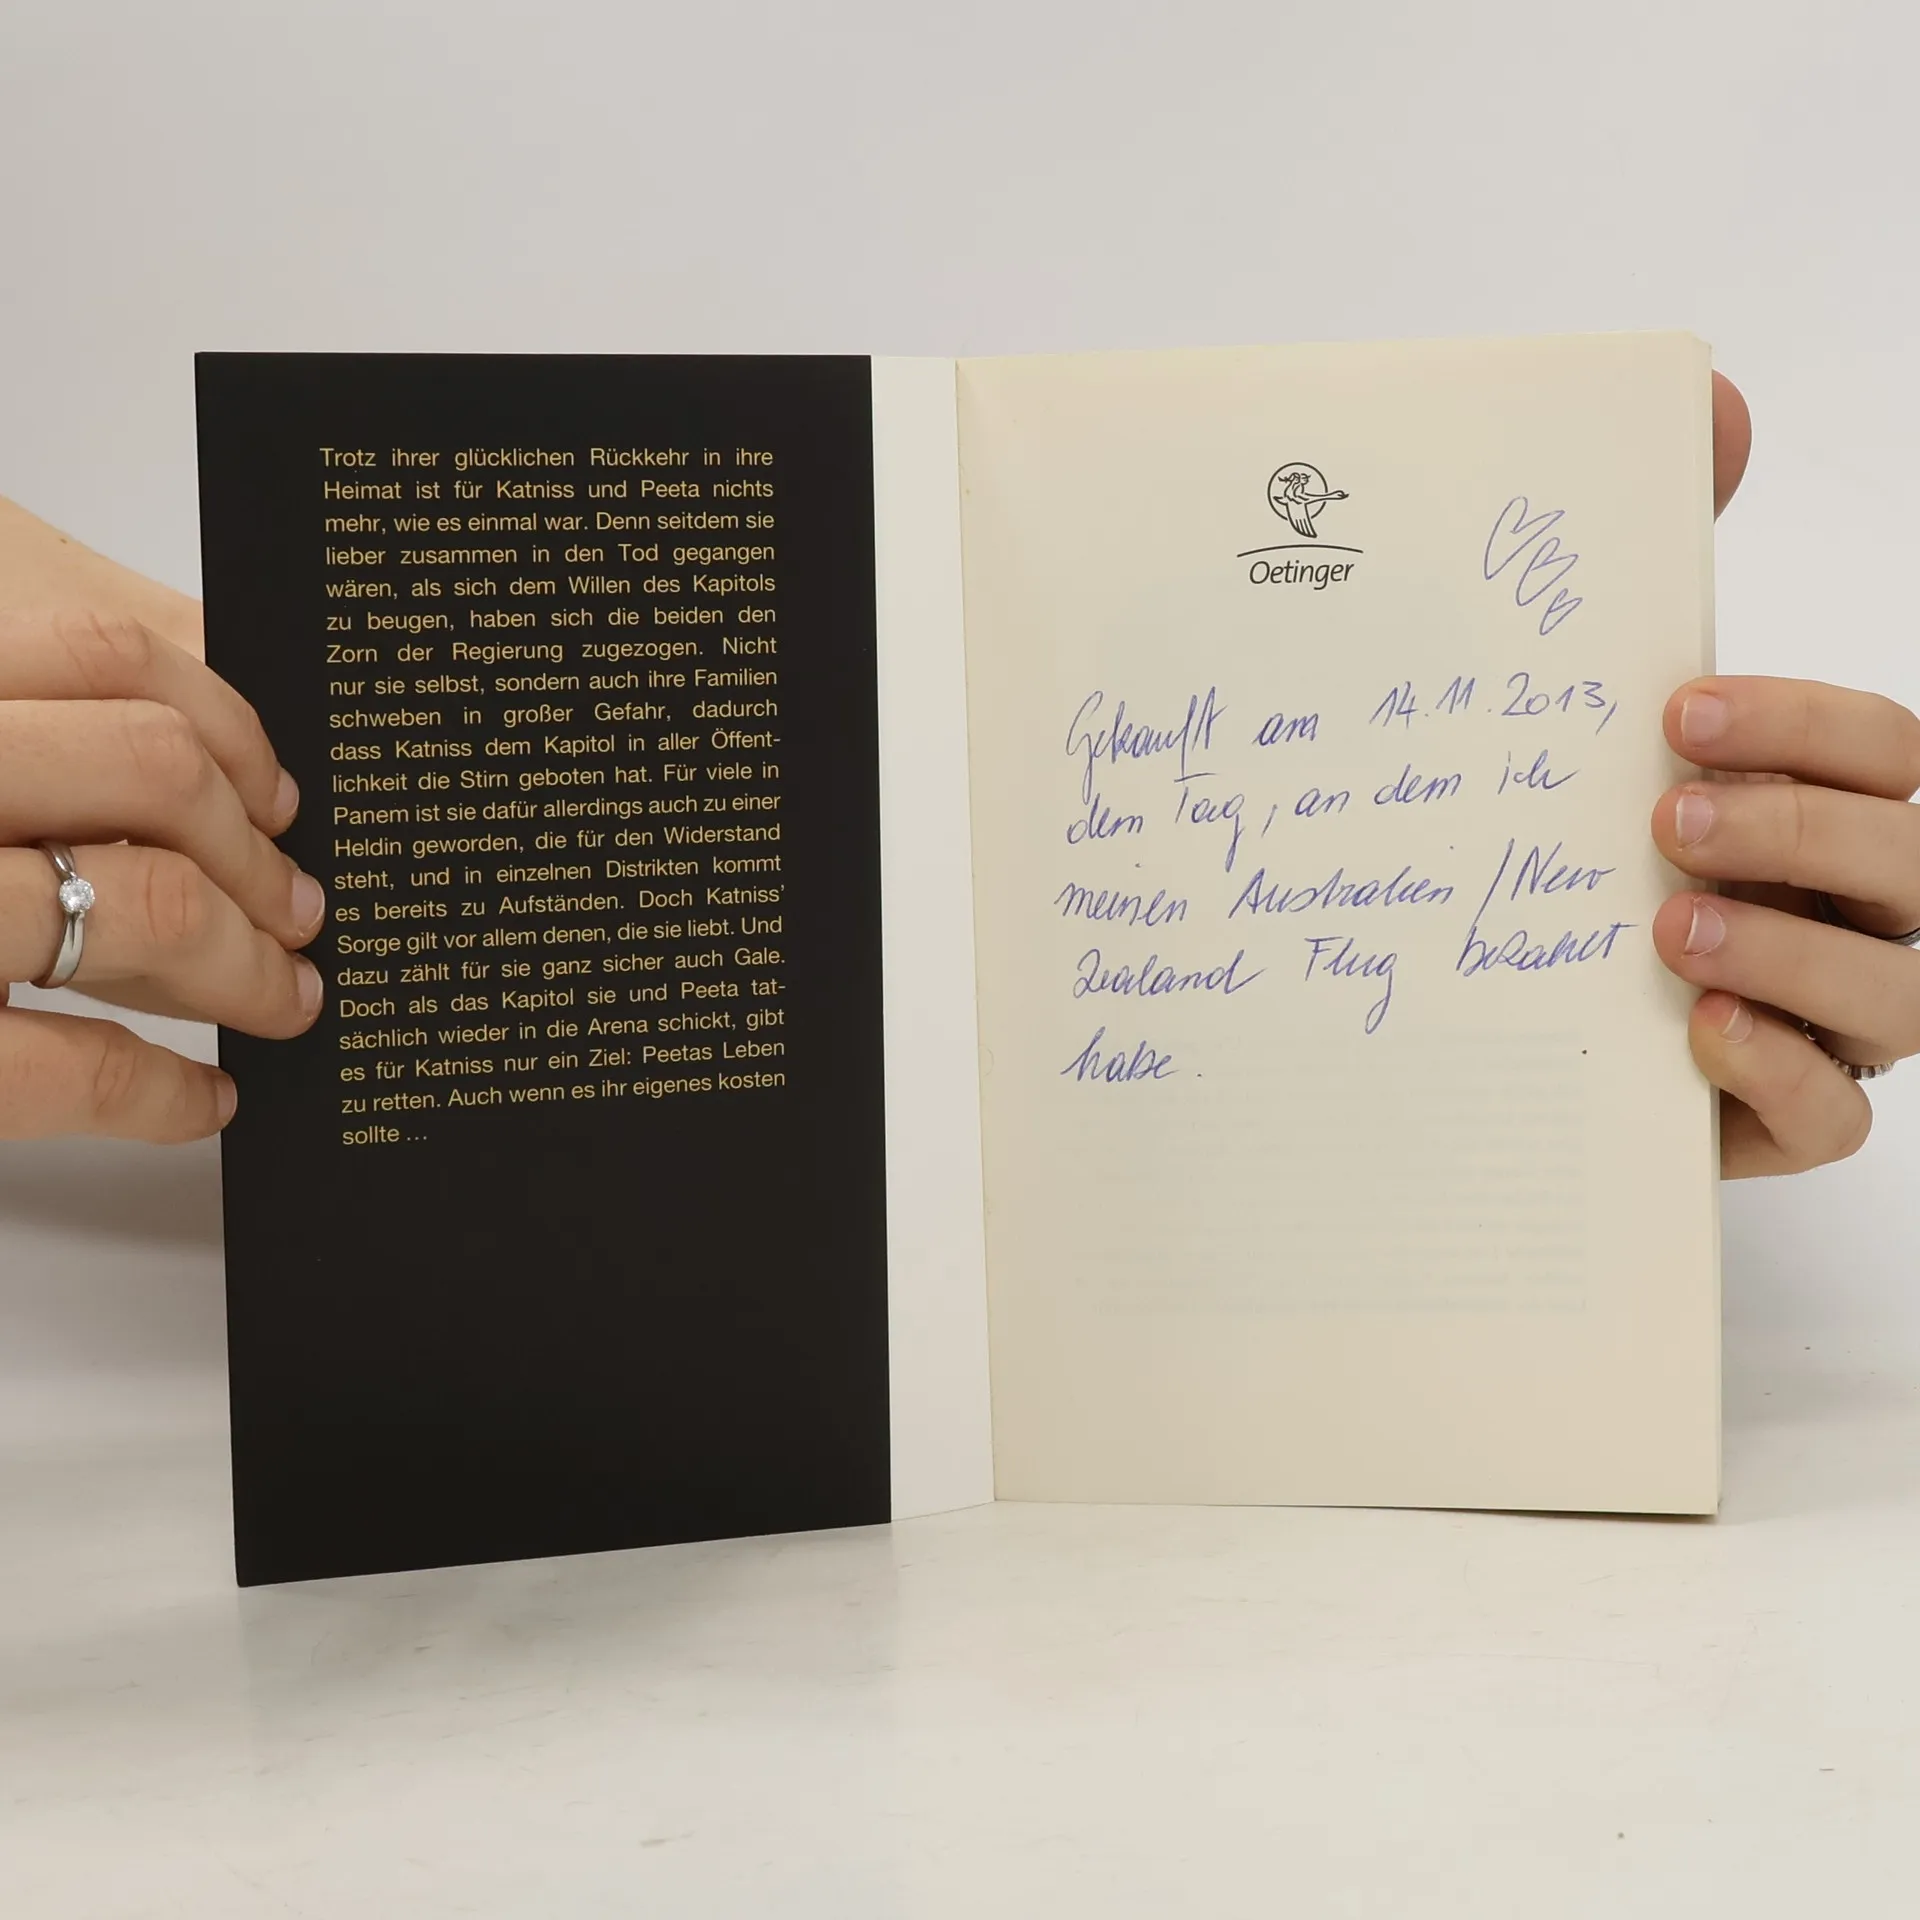 Trotz ihrer glücklichen Rückkehr in ihre
Heimat ist für Katniss und Peeta nichts
mehr, wie es einmal war. Denn seitdem sie
lieber zusammen in den Tod gegangen
wären, als sich dem Willen des Kapitols
zu beugen, haben sich die beiden den
Zorn der Regierung zugezogen. Nicht
nur sie selbst, sondern auch ihre Familien
schweben in großer Gefahr, dadurch
dass Katniss dem Kapitol in aller Öffent-
lichkeit die Stirn geboten hat. Für viele in
Panem ist sie dafür allerdings auch zu einer
Heldin geworden, die für den Widerstand
steht, und in einzelnen Distrikten kommt
es bereits zu Aufständen. Doch Katniss’
Sorge gilt vor allem denen, die sie liebt. Und
dazu zählt für sie ganz sicher auch Gale.
Doch als das Kapitol sie und Peeta tat-
sächlich wieder in die Arena schickt, gibt
es für Katniss nur ein Ziel: Peetas Leben
zu retten. Auch wenn es ihr eigenes kosten
sollte …
Oetinger
Gekauft am 14.11.2013,
dem Tag, an dem ich
meinen Australien / New
Zealand Flug bezahlt
habe.